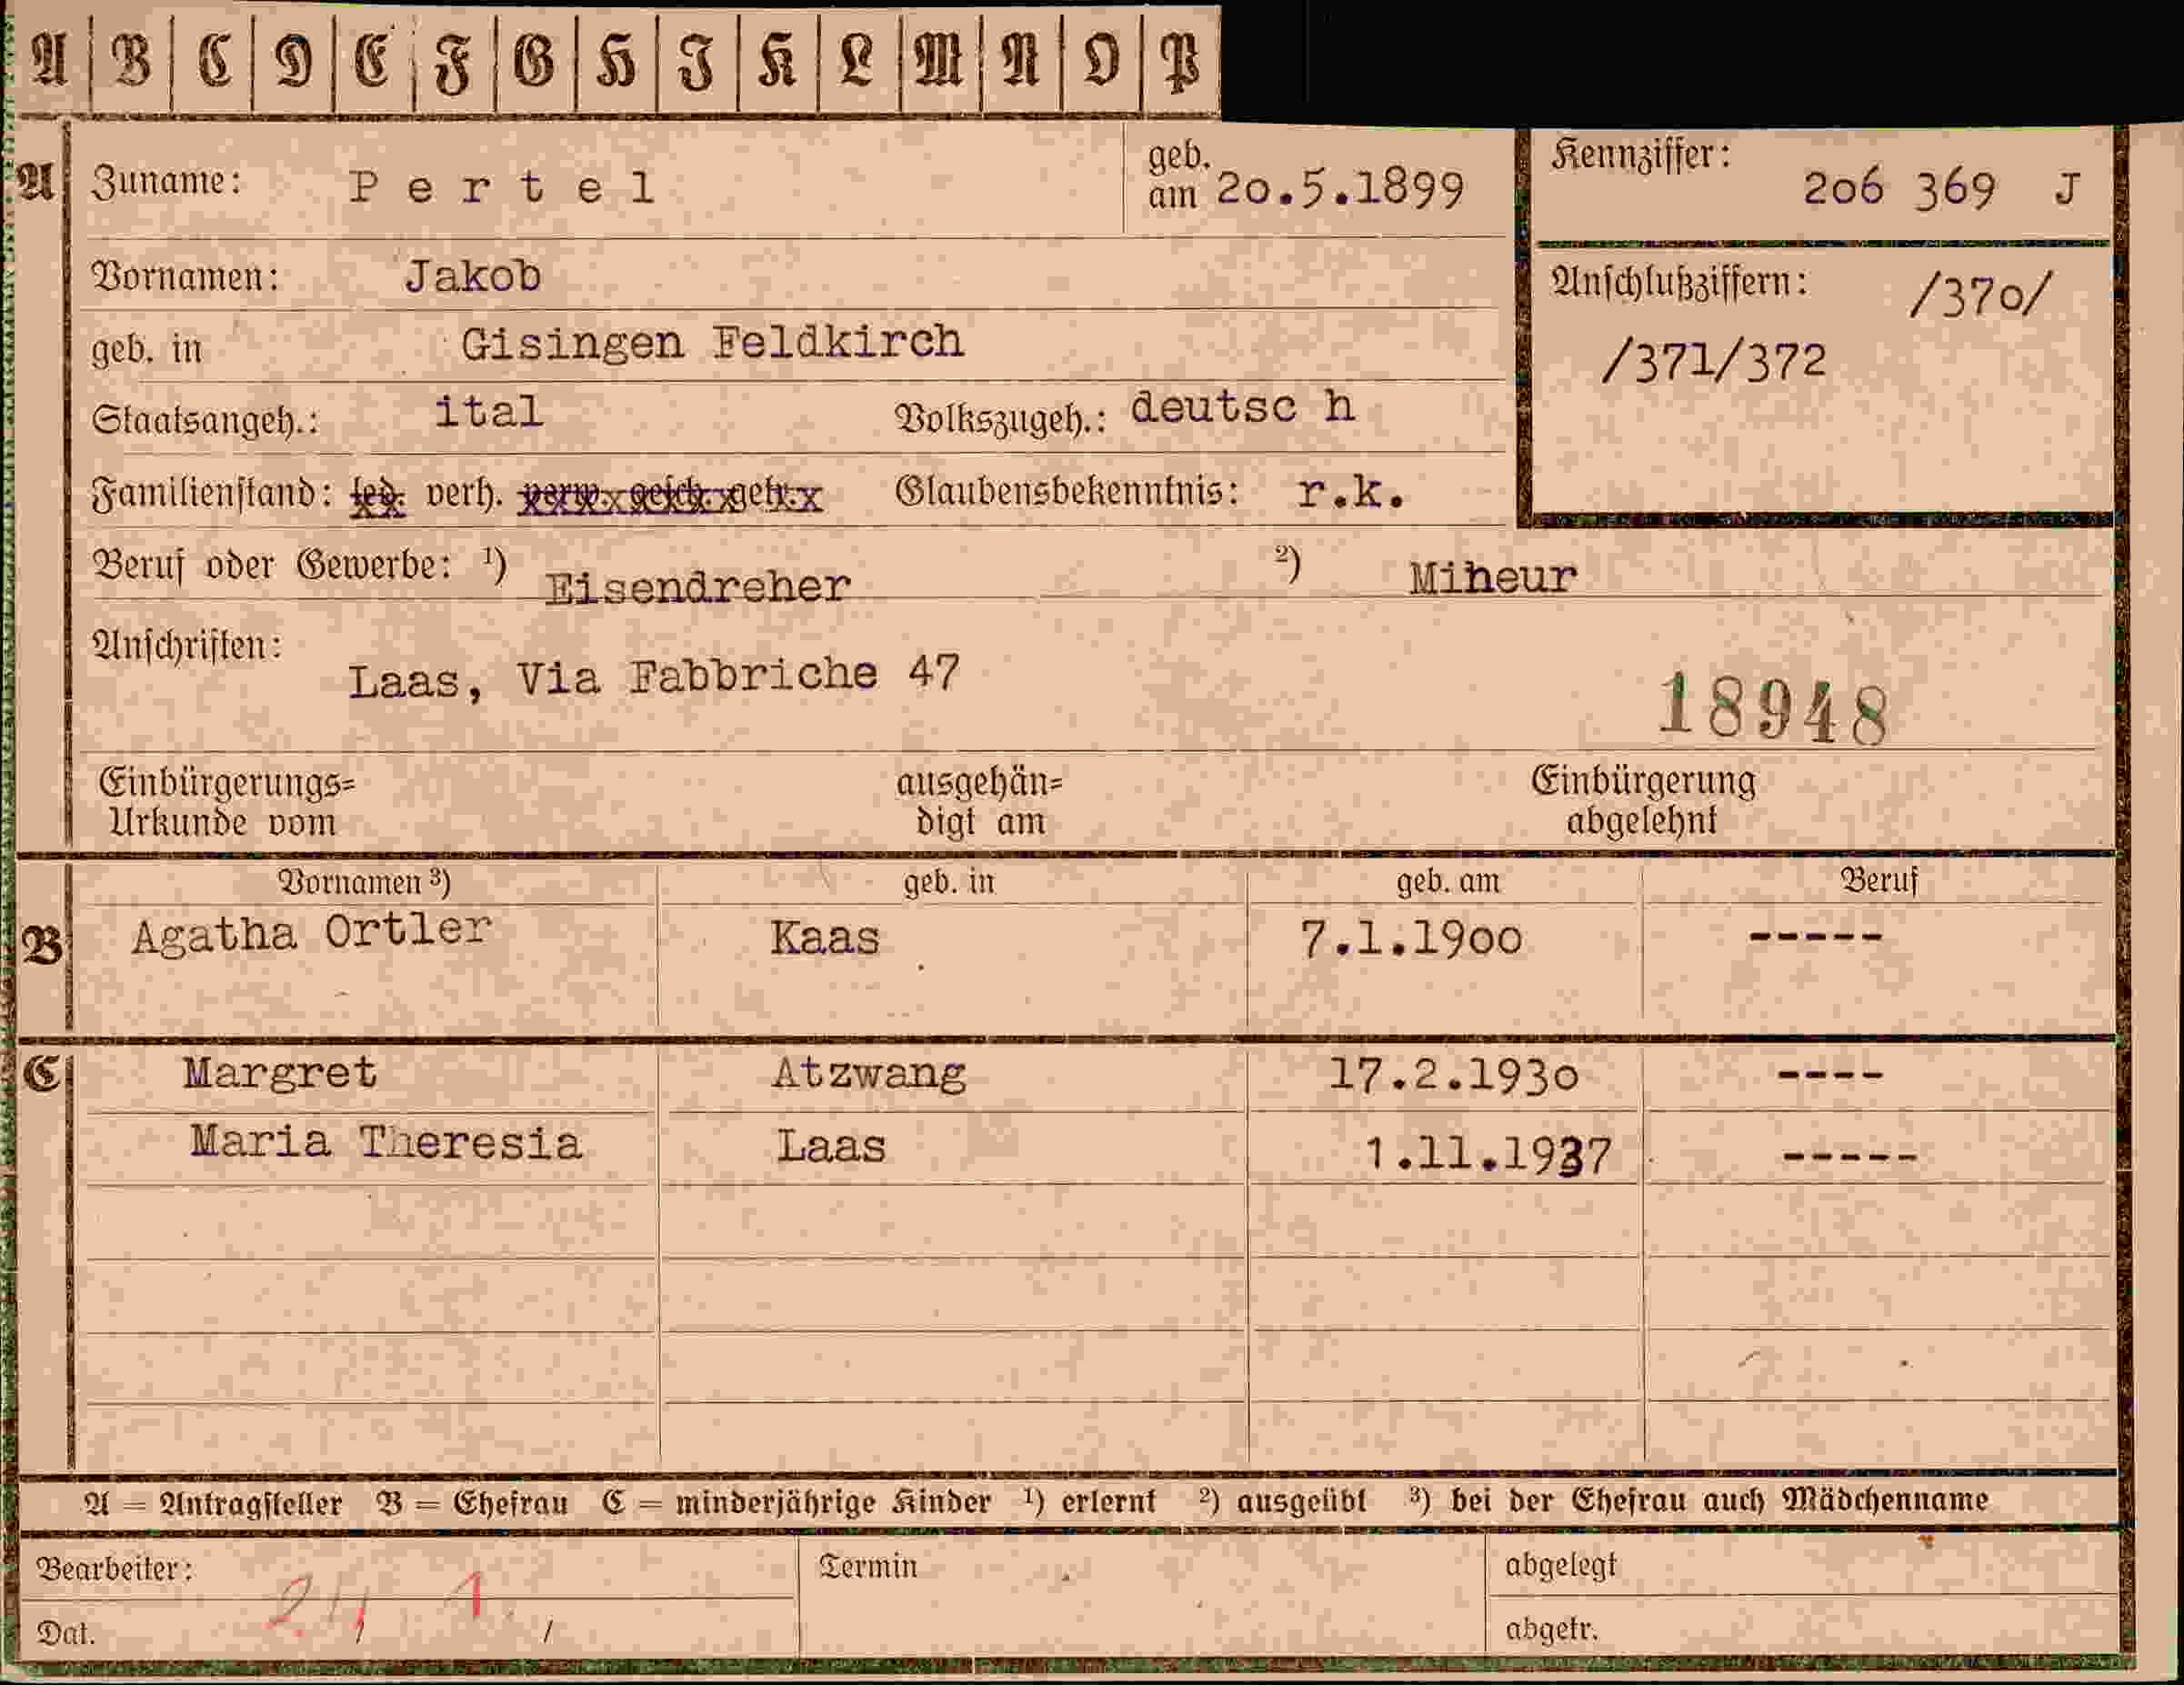 A B C D E F G H I K L M N O P
A Zuname: Pertel geb. am 20.5.1899 Kennziffer: 206 369 J
Vornamen: Jakob Anschlußziffern: /370/
geb. in Gisingen Feldkirch /371/372
Staatsangeh.: ital Volkszugeh.: deutsc h
Familienstand: led. verh. verw. gesch. getr. Glaubensbekenntnis: r.k.
Beruf oder Gewerbe: ¹) Eisendreher ²) Miheur
Anschriften:
Laas, Via Fabbriche 47
18948
Einbürgerungs= Urkunde vom ausgehän= digt am Einbürgerung abgelehnt
Vornamen ³) geb. in geb. am Beruf
B Agatha Ortler Kaas 7.1.1900 -----
C Margret Atzwang 17.2.1930 ----
Maria Theresia Laas 1.11.1937 -----
A = Antragsteller B = Ehefrau C = minderjährige Kinder ¹) erlernt ²) ausgeübt ³) bei der Ehefrau auch Mädchenname
Bearbeiter: Termin abgelegt
Dat. / / abgetr.